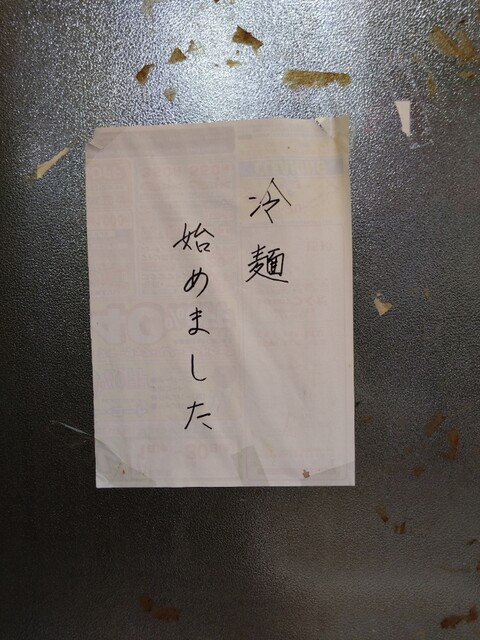 冷麺
始めました